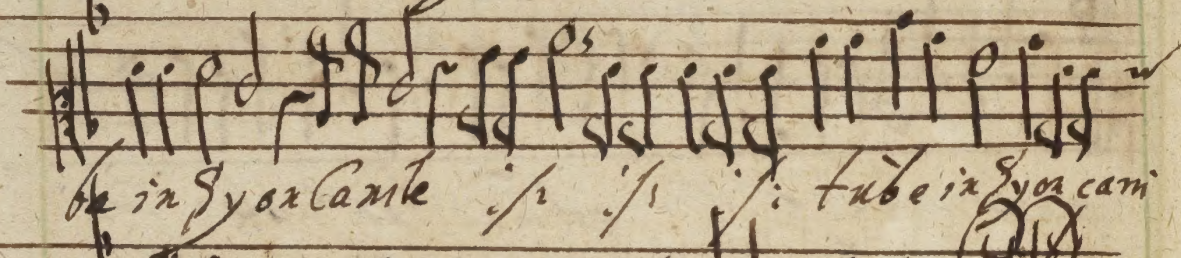 be in Syon Canite ./. ./. ./: tube in Syon cani